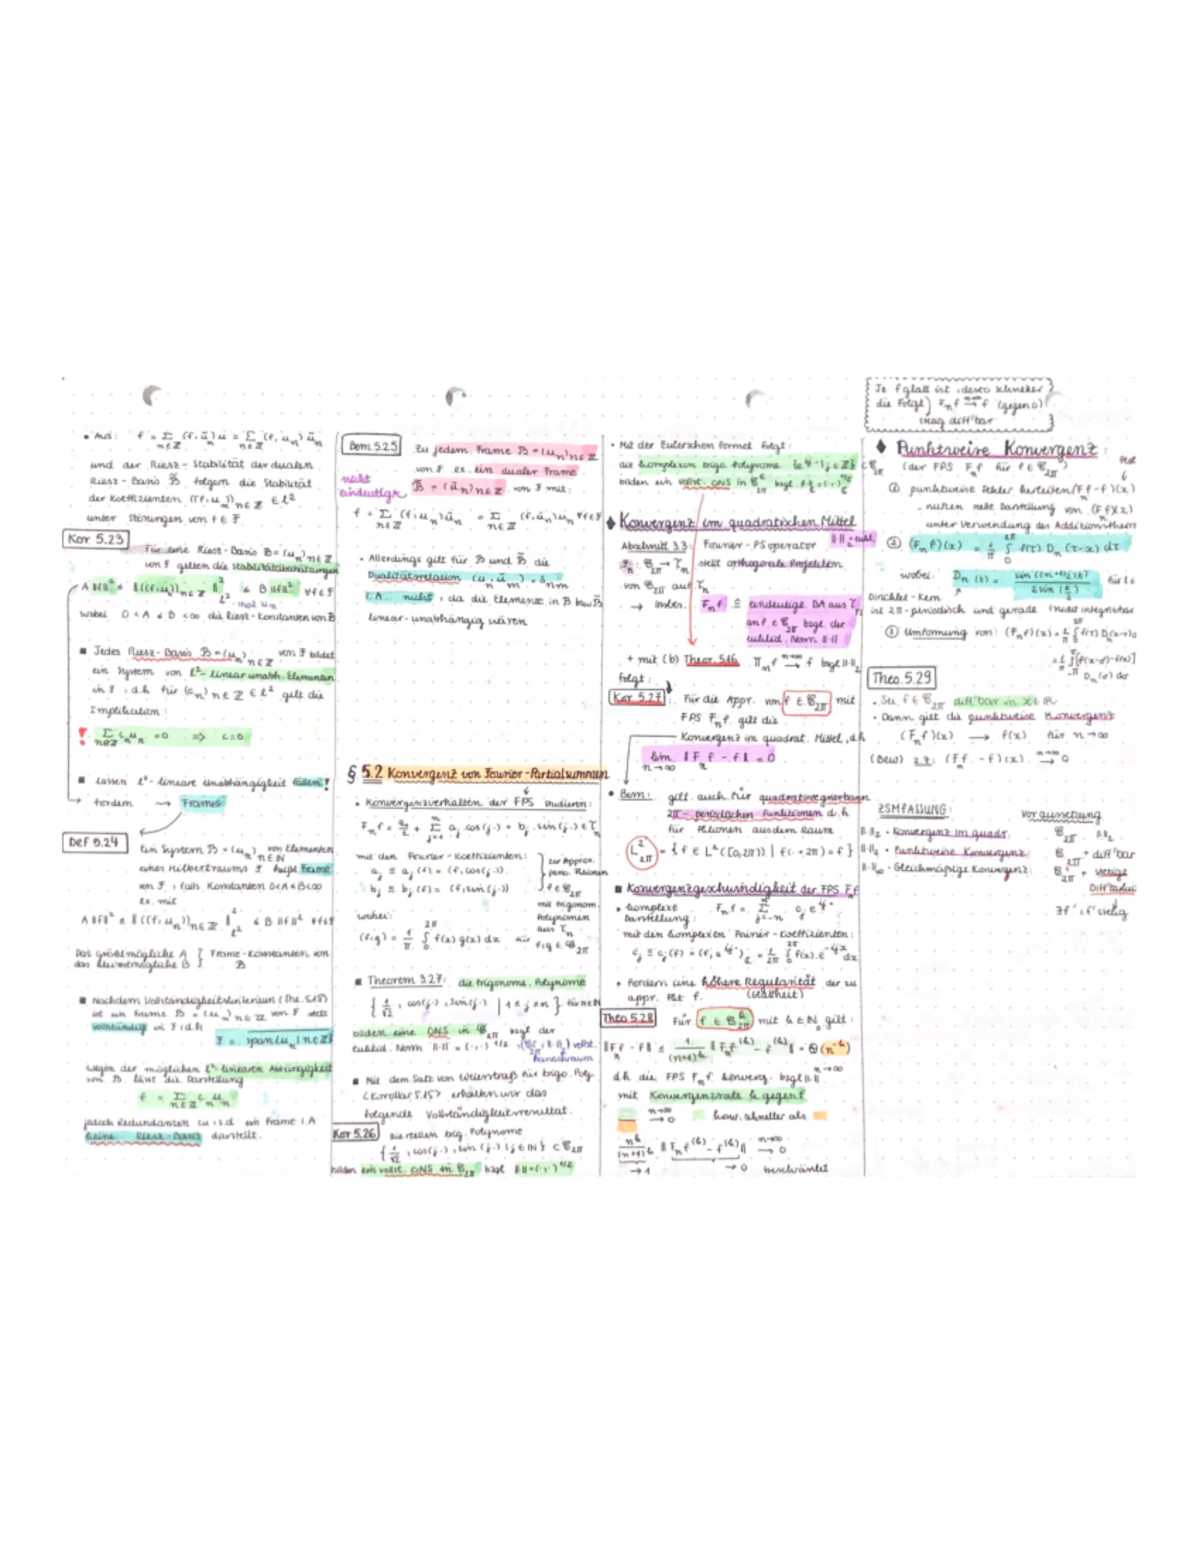 • Aus: f = Σ (f, ũn) un = Σ (f, un) ũn
n∈ℤ n∈ℤ
und der Riesz - Stabilität der dualen
Riesz - Basis B̃ folgern die Stabilität
der Koeffizienten ((f, un))n∈ℤ ∈ ℓ²
unter Störungen von f ∈ F
Kor 5.23
Für eine Riesz - Basis B = (un)n∈ℤ
von F gelten die Stabilitätsabschätzungen
A ||f||² ≤ ||((f, un))n∈ℤ||²ℓ² ≤ B ||f||² ∀f∈F
wobei 0 < A ≤ B < ∞ die Riesz - Konstanten von B
■ Jedes Riesz - Basis B = (un)n∈ℤ von F bildet
ein System von ℓ² - linear unabh. Elementen
in F, d.h für (cn)n∈ℤ ∈ ℓ² gilt die
Implikation:
! Σ cn un = 0 ⇒ c = 0
n∈ℤ
■ lassen ℓ² - lineare Unabhängigkeit fallen!
→ fordern → Frames
Def 5.24
Ein System B = (un)n∈ℕ von Elementen
eines Hilbertraums F heißt Frame
von F, falls Konstanten 0<A≤B<∞
ex. mit
A ||f||² ≤ ||((f, un))n∈ℤ||²ℓ² ≤ B ||f||² ∀f∈F
Das größtmögliche A } Frame - Konstanten von
das kleinstmögliche B } B
■ Nach dem Vollständigkeitskriterium (The. 5.18)
ist ein Frame B = (un)n∈ℤ von F stets
vollständig in F, d.h
F = span(un)n∈ℤ
wegen der möglichen ℓ² - linearen Abhängigkeit
von B lässt die Darstellung
f = Σ cn un
n∈ℤ
jedoch Redundanzen zu, s.d. ein Frame i.A
keine Riesz - Basis darstellt.
Bem 5.25
Zu jedem Frame B = (un)n∈ℤ
von F ex. ein dualer Frame
nicht
eindeutig
B̃ = (ũn)n∈ℤ von F mit:
f = Σ (f, un) ũn = Σ (f, ũn) un ∀f∈F
n∈ℤ n∈ℤ
• Allerdings gilt für B und B̃ die
Dualitätsrelation (un, ũm) = δnm
i.A. nicht, da die Elemente in B bzw B̃
linear - unabhängig wären
§ 5.2 Konvergenz von Fourier - Partialsummen
• Konvergenzverhalten der FPS studieren:
Fn f = a0/2 + Σ aj cos(j·) + bj sin(j·) ∈ Tn
mit den Fourier - Koeffizienten:
aj ≡ aj(f) = (f, cos(j·))
bj ≡ bj(f) = (f, sin(j·))
zur Approx.
f ∈ C2π
mit trigonom.
Polynomen
aus Tn
wobei:
(f, g) = 1/π ∫ f(x) g(x) dx für f, g ∈ C2π
■ Theorem 3.27: die trigonome. Polynome
{ 1/√2, cos(j·), sin(j·) | 1 ≤ j ≤ n } für n∈ℕ
bilden eine ONS in C2π bzgl der
euklid. Norm ||·|| = (·,·)^1/2
■ Mit dem Satz von Weierstraß für trigo. Poly.
(Korollar 5.15) erhalten wir das
folgende Vollständigkeitsresultat.
Kor 5.26 Die reellen trig. Polynome
{ 1/√2, cos(j·), sin(j·) | j ∈ ℕ } ⊂ C2π
bilden ein vollst. ONS in C2π bzgl ||·|| = (·,·)^1/2
• Mit der Eulerschen Formel folgt:
die komplexen trigo. Polynome {e^ij· | j∈ℤ} ⊂ C2π
bilden ein vollst. ONS in C2π bzgl.
♦ Konvergenz im quadratischen Mittel
Abschnitt 3.3: Fourier - PS operator
Fn: C2π → Tn stellt orthogonale Projektion
von C2π auf Tn
→ insbes. Fn f ≙ eindeutige BA aus Tn
an f ∈ C2π bzgl. der
euklid. Norm ||·||
+ mit (b) Theor. 5.16
folgt:
Kor 5.27: Für die Appr. von f ∈ C2π mit
FPS Fn f gilt die
Konvergenz im quadrat. Mittel, d.h
lim || Fn f - f || = 0
n→∞
• Bem: gilt auch für quadratintegrierbaren
2π - periodischen Funktionen d.h
für Fktionen aus dem Raum
L²2π = { f ∈ L²([0,2π)) | f(· + 2π) = f }
■ Konvergenzgeschwindigkeit der FPS Fn f
• komplexe
Darstellung:
Fn f = Σ cj e^ij·
mit den komplexen Fourier - Koeffizienten:
• Fordern eine höhere Regularität der zu
appr. Fkt f. (Glattheit)
Theo 5.28 Für f ∈ C^k2π mit k ∈ ℕ0 gilt:
d.h die FPS Fn f konverg. bzgl ||·||
mit Konvergenzrate k gegen f
konv. schneller als
→ 1 → 0 beschränkt
Je f glatt ist, desto schneller
die Folge Fn f → f (gegen 0)
stetig diff'bar
♦ Punktweise Konvergenz:
(der FPS Fn f für f ∈ C2π) fest
① punktweise Fehler herleiten (Fn f - f)(x)
- nutzen neue Darstellung von (Fn f)(x)
unter Verwendung des Additionstheorem
② (Fn f)(x) = 1/π ∫ f(τ) Dn(τ-x) dτ
wobei: Dn(t) = sin((n+1/2)t) / 2 sin(t/2)
Dirichlet - Kern
ist 2π - periodisch und gerade
③ Umformung von:
Theo. 5.29
• Sei f ∈ C2π diff'bar in x∈ℝ
• Dann gilt die punktweise Konvergenz
(Fn f)(x) → f(x) für n→∞
(Bew) z.z: (Fn f - f)(x) → 0
ZSMFASSUNG: Voraussetzung
||·||2 • Konvergenz im quadr.
• Punktweise Konvergenz: C2π + diff'bar
||·||∞ - Gleichmäßige Konvergenz: C2π + stetige
Diff'barkeit
∃f', f' stetig